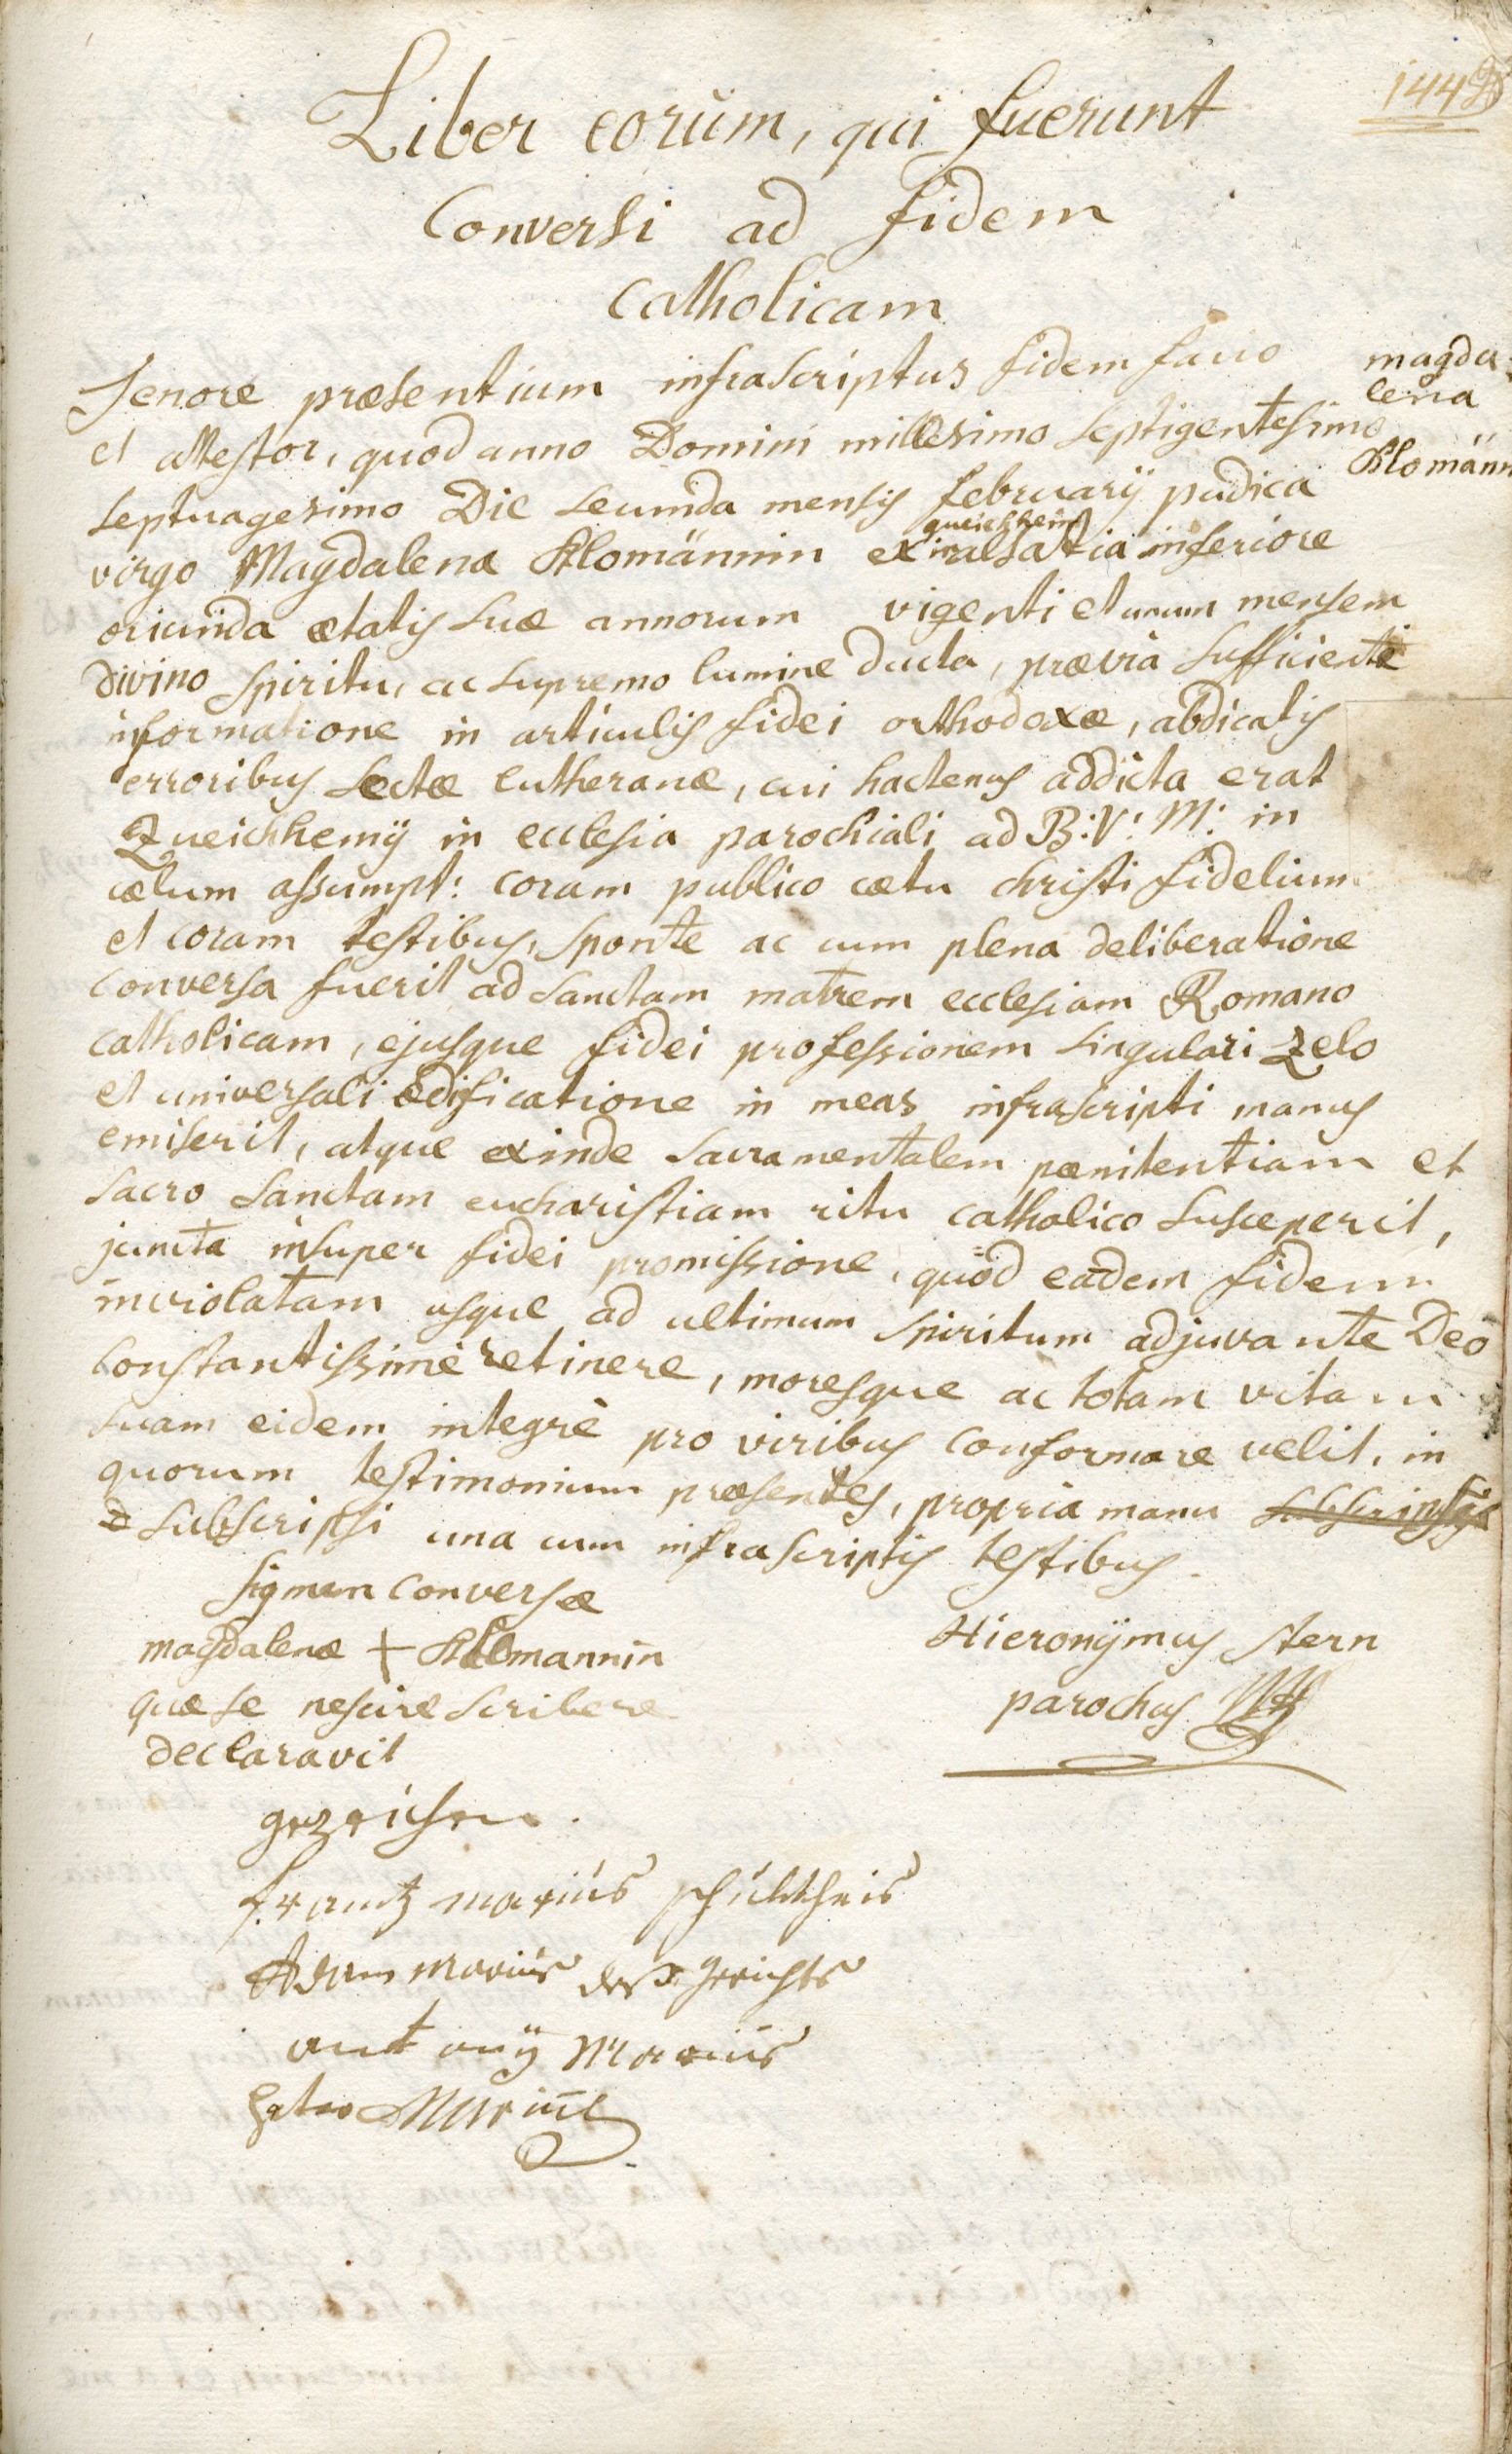 144
Liber eorum, qui fuerunt
Conversi ad fidem
Catholicam
magda-
lena
Klomänn
Tenore præsentium infrascriptus fidem facio
et attestor, quod anno Domini millesimo septigentesimo
septuagesimo Die secunda mensis februarij pudica
queichheim
virgo Magdalena Klomännin ex in alsatia inferiore
oriunda ætatis suæ annorum vigenti et unum mensem
divino spiritu, ac supremo lumine ducta, prævia sufficiente
informatione in articulis fidei orthodoxæ, abdicatis
erroribus sectæ lutheranæ, cui hactenus addicta erat
Queichhemij in ecclesia parochiali ad B: V: M: in
cælum assumpt: coram publico cætu christi fidelium
et coram testibus, sponte ac cum plena deliberatione
conversa fuerit ad sanctam matrem ecclesiam Romano
catholicam, ejusque fidei professionem singulari zelo
et universali ædificatione in meas infrascripti manus
emiserit, atque exinde sacramentalem pænitentiam et
sacro sanctam eucharistiam ritu catholico susceperit,
juncta insuper fidei promissione, quod eadem fidem
inviolatam usque ad ultimum spiritum adjuvante Deo
constantissimè retinere, moresque ac totam vitam
suam eidem integrè pro viribus conformare velit, in
quorum testimonium præsentes, propria manu subscripsi
subscripsi una cum infrascriptis testibus.
signum conversæ
magdalenæ + Klomannin
quæ se nescire scribere
declaravit
Hieronÿmus Stern
parochus
gezeichen.
frantz marius schultheis
Adam Marius deß gerichts
antonÿ Marius
Peter Marius